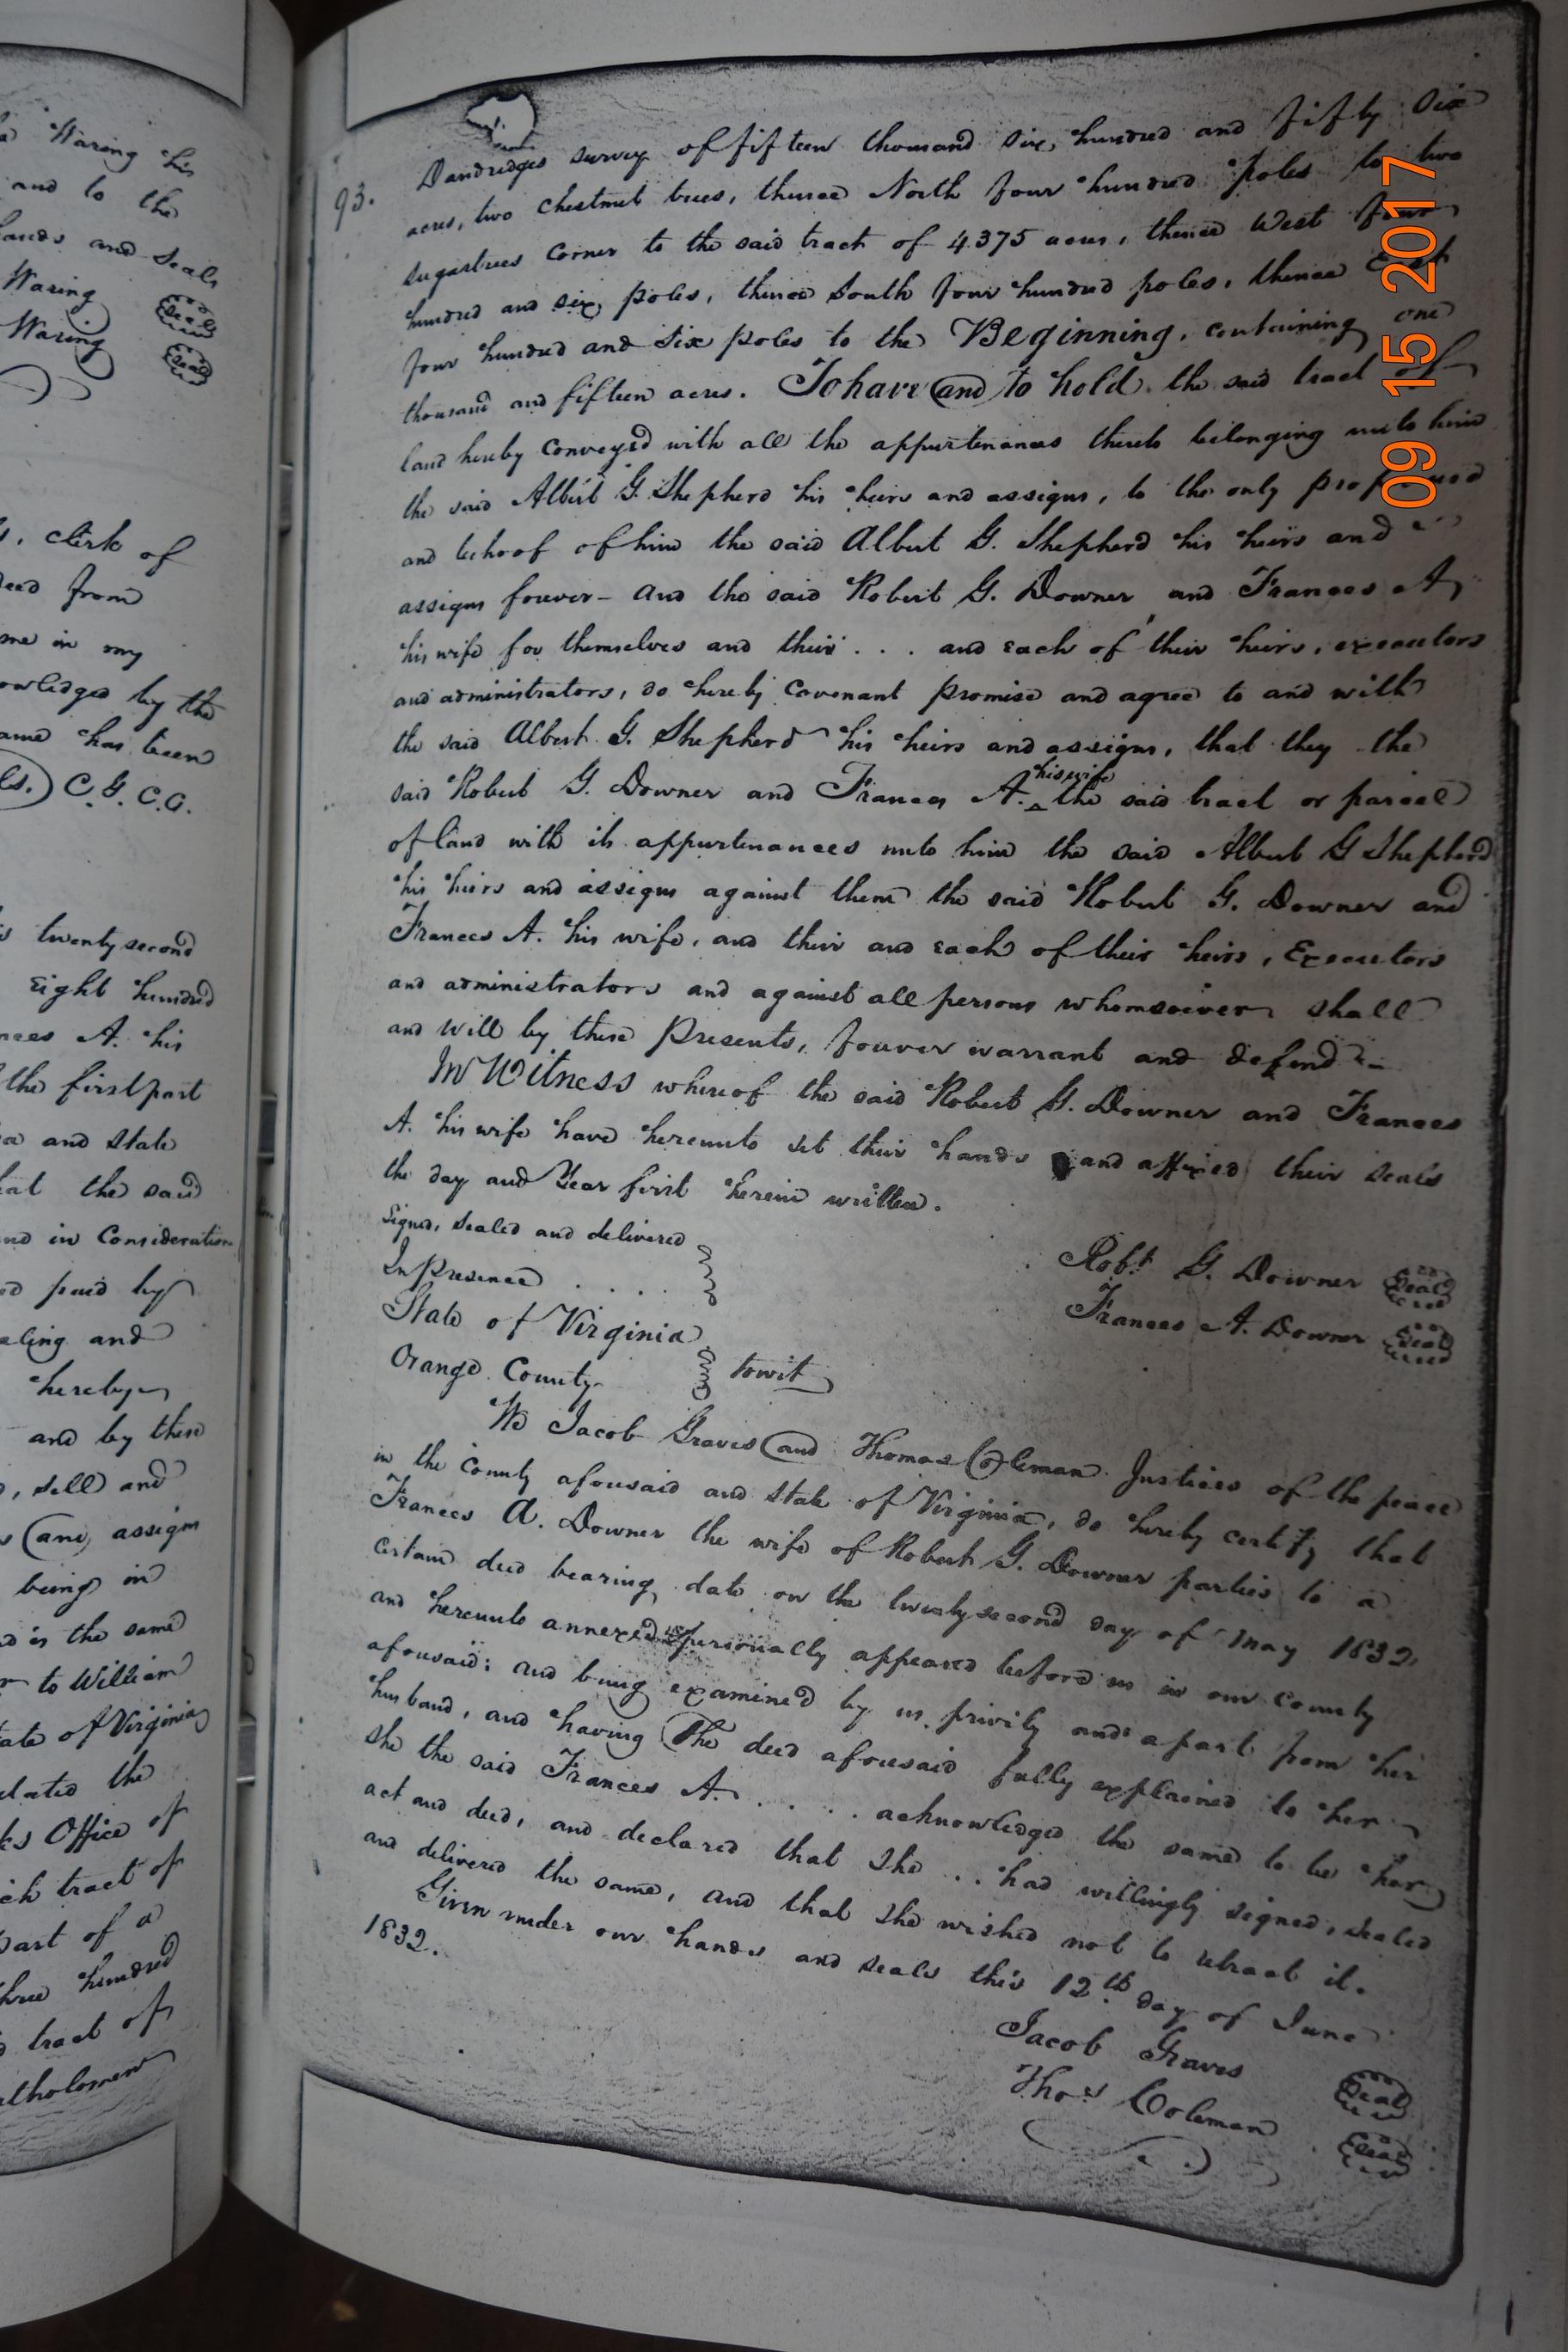 Waring his
and to the
hands and Seals
Waring Seal
Waring Seal
s, clerk of
deed from
me in my
owledged by the
ame has been
C. G. C. C.
s twenty second
Eight hundred
nces A. his
the first part
a and State
hat the said
and in Consideration
paid by
eling and
hereby
and by these
, sell and
s and assigns
being in
d is the same
r to William
ate of Virginia
dated the
ks Office of
ch tract of
part of a
three hundred
tract of
artholomew
93.
Dandridges survey of fifteen thousand six hundred and fifty six
acres, two chestnut trees, thence North four hundred poles to two
sugartrees corner to the said tract of 4375 acres, thence West four
hundred and six poles, thence South four hundred poles, thence East
four hundred and six poles to the Beginning, containing one
thousand and fifteen acres. To have and to hold the said tract of
land hereby conveyed with all the appurtenances thereto belonging unto him
the said Albert G. Shepherd his heirs and assigns, to the only proper used
and behoof of him the said Albert G. Shepherd his heirs and
assigns forever - and the said Robert G. Downer and Frances A.
his wife for themselves and their . . . and each of their heirs, executors
and administrators, do hereby covenant promise and agree to and with
the said Albert G. Shepherd his heirs and assigns, that they the
said Robert G. Downer and Frances A. his wife the said tract or parcel
of land with its appurtenances unto him the said Albert G Shepherd
his heirs and assigns against them the said Robert G. Downer and
Frances A. his wife, and their and each of their heirs, Executors
and administrators and against all persons whomsoever shall
and will by these Presents, forever warrant and defend
In Witness whereof the said Robert G. Downer and Frances
A. his wife have hereunto set their hands and affixed their seals
the day and Year first herein written.
Signed, sealed and delivered
In presence . . . .
Robt. G. Downer Seal
Frances A. Downer Seal
State of Virginia
Orange County towit
We Jacob Graves and Thomas Coleman Justices of the peace
in the County aforesaid and State of Virginia, do hereby certify that
Frances A. Downer the wife of Robert G. Downer parties to a
certain deed bearing date on the twenty second day of May 1832,
and hereunto annexed personally appeared before us in our County
aforesaid; and being examined by us privily and apart from her
husband, and having The deed aforesaid fully explained to her
she the said Frances A. . . . . acknowledged the same to be her
act and deed, and declared that she . . had willingly signed, sealed
and delivered the same, and that she wished not to retract it.
Given under our hands and seals this 12th day of June
1832.
Jacob Graves Seal
Thos Coleman Seal
09 15 2017